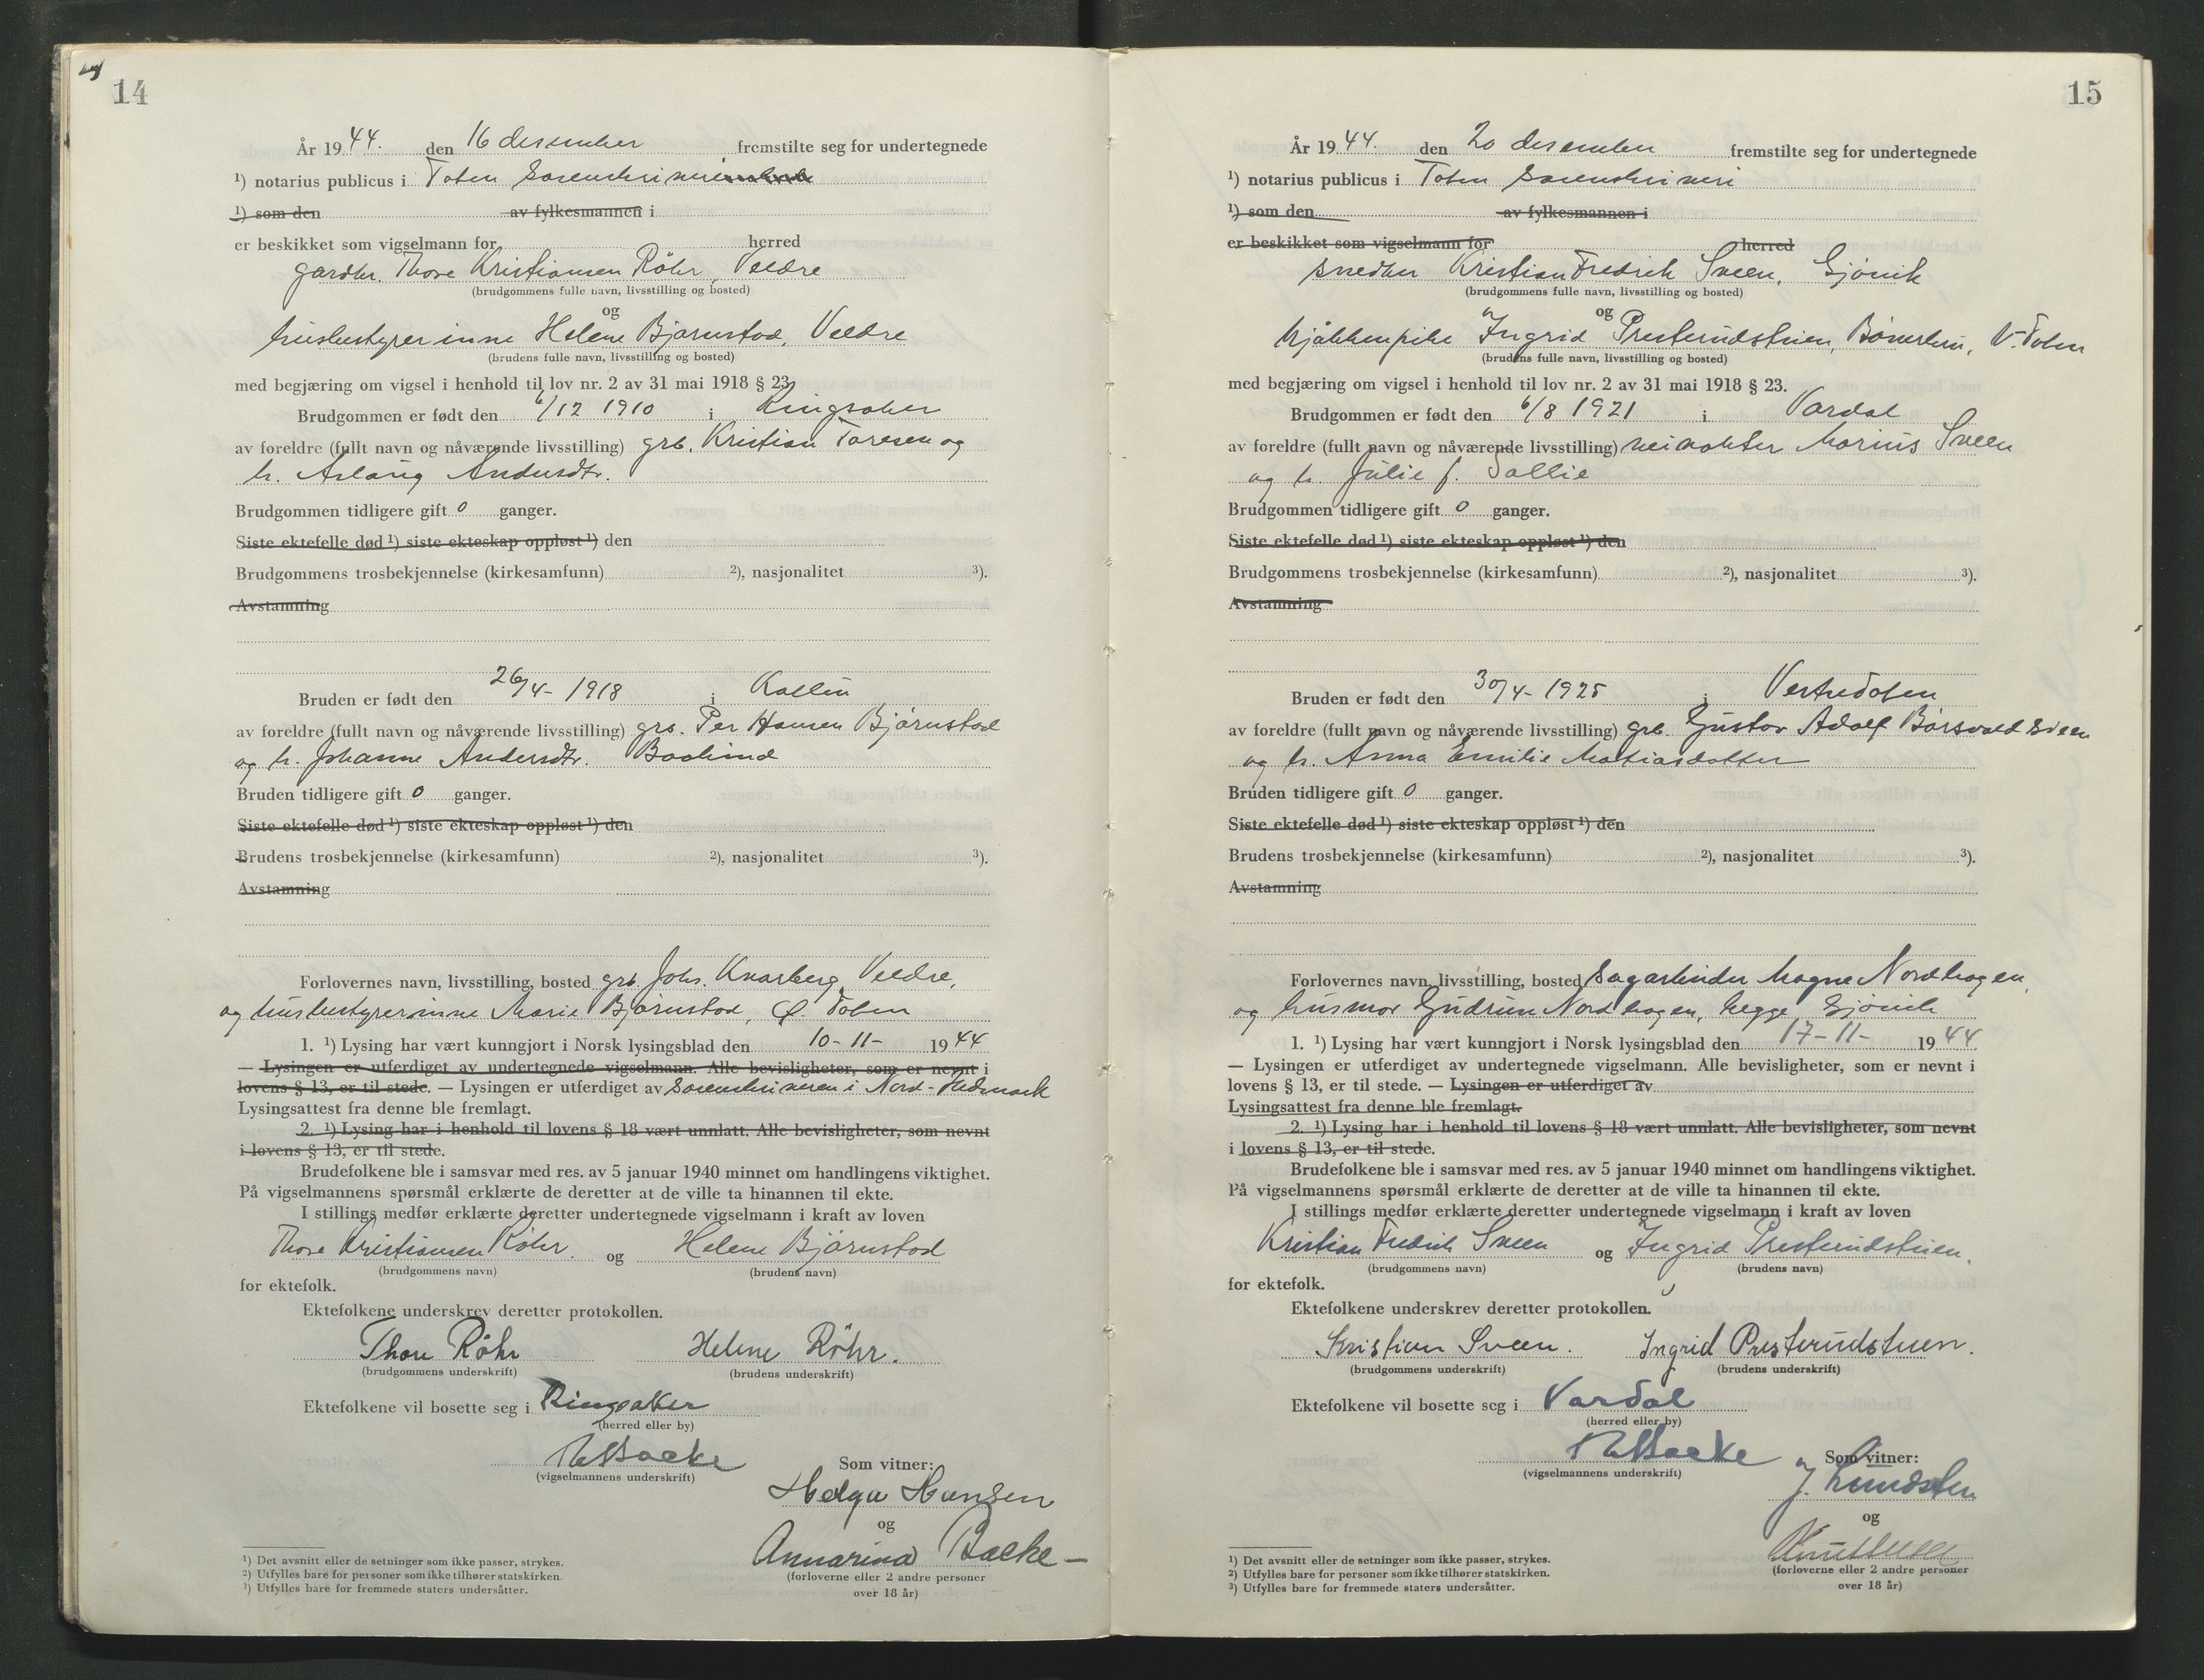 14
År 1944. den 16 desember fremstilte seg for undertegnede
¹) notarius publicus i Toten Sorenskriveri
¹) som den av fylkesmannen i
er beskikket som vigselmann for herred
gardbr. Thore Kristiansen Röhr, Veldre
(brudgommens fulle navn, livsstilling og bosted)
og
husbestyrerinne Helene Bjørnstad, Veldre
(brudens fulle navn, livsstilling og bosted)
med begjæring om vigsel i henhold til lov nr. 2 av 31 mai 1918 § 23.
Brudgommen er født den 6/12 1910 i Ringsaker
av foreldre (fullt navn og nåværende livsstilling) grb. Kristian Toresen og
h. Aslaug Andersdtr.
Brudgommen tidligere gift 0 ganger.
Siste ektefelle død ¹) siste ekteskap oppløst ¹) den
Brudgommens trosbekjennelse (kirkesamfunn) ²), nasjonalitet ³).
Avstamning
Bruden er født den 26/4- 1918 i Kolbu
av foreldre (fullt navn og nåværende livsstilling) grb. Per Hansen Bjørnstad
og h. Johanne Andersdtr.
Bruden tidligere gift 0 ganger.
Siste ektefelle død ¹) siste ekteskap oppløst ¹) den
Brudens trosbekjennelse (kirkesamfunn) ²), nasjonalitet ³).
Avstamning
Forlovernes navn, livsstilling, bosted grb. Johs. Kvarberg, Veldre,
og husbestyrerinne Marie Bjørnstad, Ø. Toten
1. ¹) Lysing har vært kunngjort i Norsk lysingsblad den 10-11- 1944
— Lysingen er utferdiget av undertegnede vigselmann. Alle bevisligheter, som er nevnt i
lovens § 13, er til stede. — Lysingen er utferdiget av sorenskriveren i Nord-Hedmark
Lysingsattest fra denne ble fremlagt.
2. ¹) Lysing har i henhold til lovens § 18 vært unnlatt. Alle bevisligheter, som nevnt
i lovens § 13, er til stede.
Brudefolkene ble i samsvar med res. av 5 januar 1940 minnet om handlingens viktighet.
På vigselmannens spørsmål erklærte de deretter at de ville ta hinannen til ekte.
I stillings medfør erklærte deretter undertegnede vigselmann i kraft av loven
Thore Kristiansen Röhr. og Helene Bjørnstad
(brudgommens navn) (brudens navn)
for ektefolk.
Ektefolkene underskrev deretter protokollen.
Thore Röhr Helene Röhr.
(brudgommens underskrift) (brudens underskrift)
Ektefolkene vil bosette seg i Ringsaker
(herred eller by)
Backe
(vigselmannens underskrift)
Som vitner:
Helga Hansen
og
Annarina Backe—
(forloverne eller 2 andre personer
over 18 år)
¹) Det avsnitt eller de setninger som ikke passer, strykes.
²) Utfylles bare for personer som ikke tilhører statskirken.
³) Utfylles bare for fremmede staters undersåtter.
15
År 1944. den 20 desember fremstilte seg for undertegnede
¹) notarius publicus i Toten Sorenskriveri
¹) som den av fylkesmannen i
er beskikket som vigselmann for herred
snedker Kristian Fredrik Sveen, Gjøvik
(brudgommens fulle navn, livsstilling og bosted)
og
kjøkkenpike Ingrid Presterudstuen, V. Toten
(brudens fulle navn, livsstilling og bosted)
med begjæring om vigsel i henhold til lov nr. 2 av 31 mai 1918 § 23.
Brudgommen er født den 6/8 1921 i Vardal
av foreldre (fullt navn og nåværende livsstilling) veivokter Marius Sveen
og h. Julie f. Sollie
Brudgommen tidligere gift 0 ganger.
Siste ektefelle død ¹) siste ekteskap oppløst ¹) den
Brudgommens trosbekjennelse (kirkesamfunn) ²), nasjonalitet ³).
Avstamning
Bruden er født den 30/4- 1925 i Vestre Toten
av foreldre (fullt navn og nåværende livsstilling) grb. Gustav Adolf Børsvoldsveen
og h. Anna Emilie Matiasdatter
Bruden tidligere gift 0 ganger.
Siste ektefelle død ¹) siste ekteskap oppløst ¹) den
Brudens trosbekjennelse (kirkesamfunn) ²), nasjonalitet ³).
Avstamning
Forlovernes navn, livsstilling, bosted Sagarbeider Magne Nordhagen,
og husmor Gudrun Nordhagen, Hegge, Gjøvik
1. ¹) Lysing har vært kunngjort i Norsk lysingsblad den 17-11- 1944
— Lysingen er utferdiget av undertegnede vigselmann. Alle bevisligheter, som er nevnt i
lovens § 13, er til stede. — Lysingen er utferdiget av
Lysingsattest fra denne ble fremlagt.
2. ¹) Lysing har i henhold til lovens § 18 vært unnlatt. Alle bevisligheter, som nevnt
i lovens § 13, er til stede.
Brudefolkene ble i samsvar med res. av 5 januar 1940 minnet om handlingens viktighet.
På vigselmannens spørsmål erklærte de deretter at de ville ta hinannen til ekte.
I stillings medfør erklærte deretter undertegnede vigselmann i kraft av loven
Kristian Fredrik Sveen og Ingrid Presterudstuen.
(brudgommens navn) (brudens navn)
for ektefolk.
Ektefolkene underskrev deretter protokollen.
Kristian Sveen. Ingrid Presterudstuen.
(brudgommens underskrift) (brudens underskrift)
Ektefolkene vil bosette seg i Vardal
(herred eller by)
Backe
(vigselmannens underskrift)
Som vitner:
J. Lundsten
og
(forloverne eller 2 andre personer
over 18 år)
¹) Det avsnitt eller de setninger som ikke passer, strykes.
²) Utfylles bare for personer som ikke tilhører statskirken.
³) Utfylles bare for fremmede staters undersåtter.